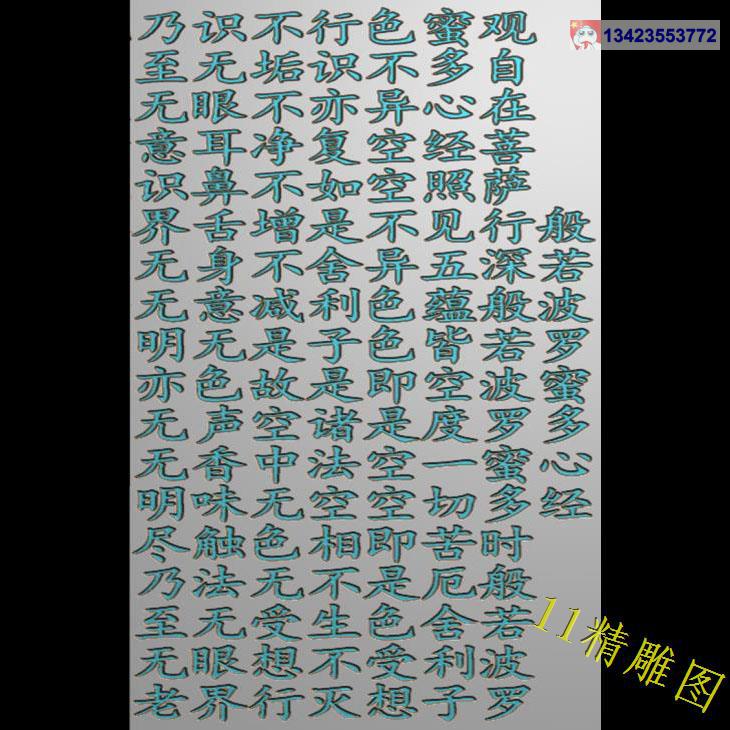 般若波罗蜜多心经
观自在菩萨行深般若波罗蜜多时般若波罗
蜜多心经照见五蕴皆空度一切苦厄舍利子
色不异空空不异色色即是空空即是色受想
行识亦复如是舍利子是诸法空相不生不灭
不垢不净不增不减是故空中无色无受想行
识无眼耳鼻舌身意无色声香味触法无眼界
乃至无意识界无无明亦无无明尽乃至无老
13423553772
11精雕图